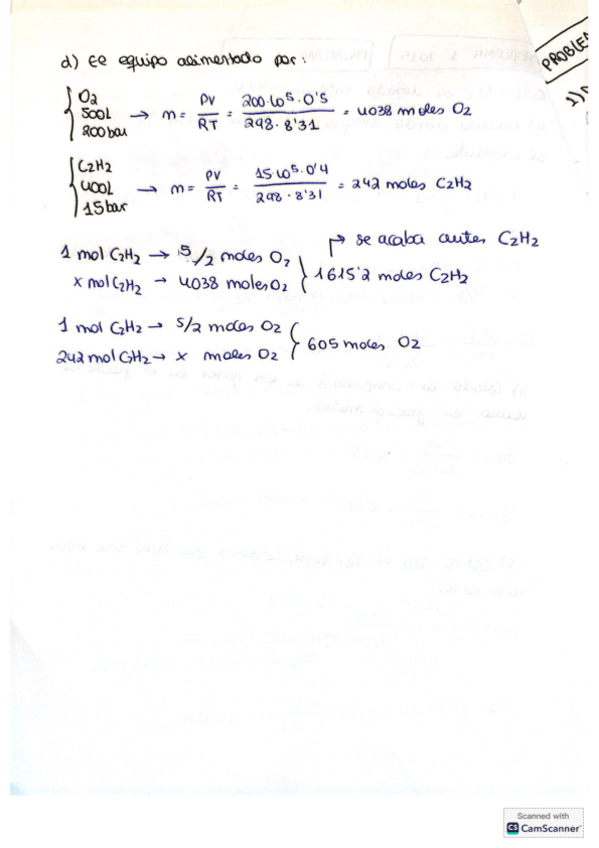 d) El equipo alimentado por:
O2
500L → n = PV/RT = 200·10^5·0'5 / 298·8'31 = 4038 moles O2
200 bar
C2H2
400L → n = PV/RT = 15·10^5·0'4 / 298·8'31 = 242 moles C2H2
15 bar
→ se acaba antes C2H2
1 mol C2H2 → 5/2 moles O2
x mol C2H2 → 4038 moles O2 } 1615'2 moles C2H2
1 mol C2H2 → 5/2 moles O2
242 mol C2H2 → x moles O2 } 605 moles O2
PROBLE
1)
Scanned with
CS CamScanner